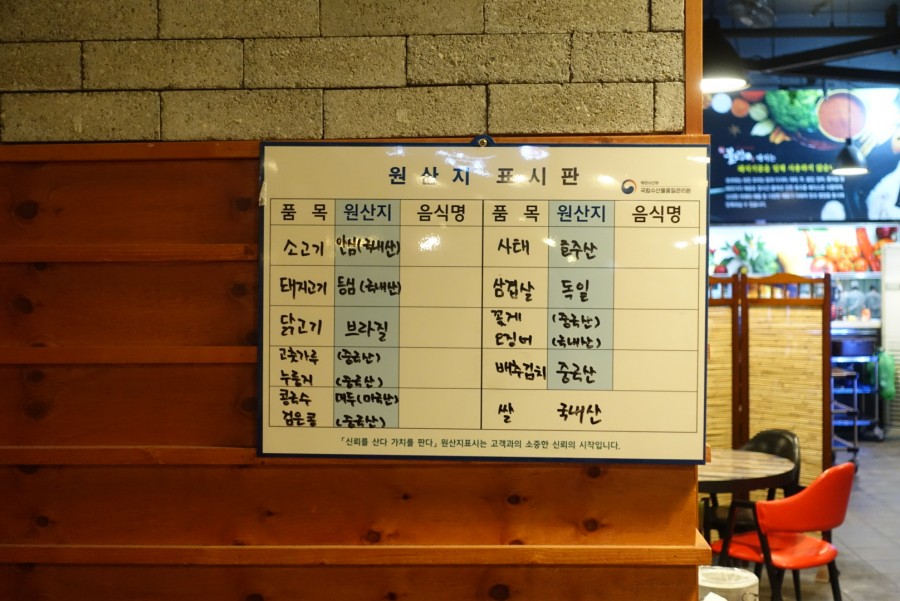 원산지 표시판
국립수산물품질관리원
품목 원산지 음식명 품목 원산지 음식명
소고기 안심(국내산) 사태 호주산
돼지고기 등심(국내산) 삼겹살 독일
닭고기 브라질 꽃게 (중국산)
오징어 (국내산)
고춧가루 (중국산) 배추김치 중국산
누룽지 (중국산)
콩국수 대두(미국산) 쌀 국내산
검은콩 (중국산)
「신뢰를 산다 가치를 판다」 원산지표시는 고객과의 소중한 신뢰의 시작입니다.